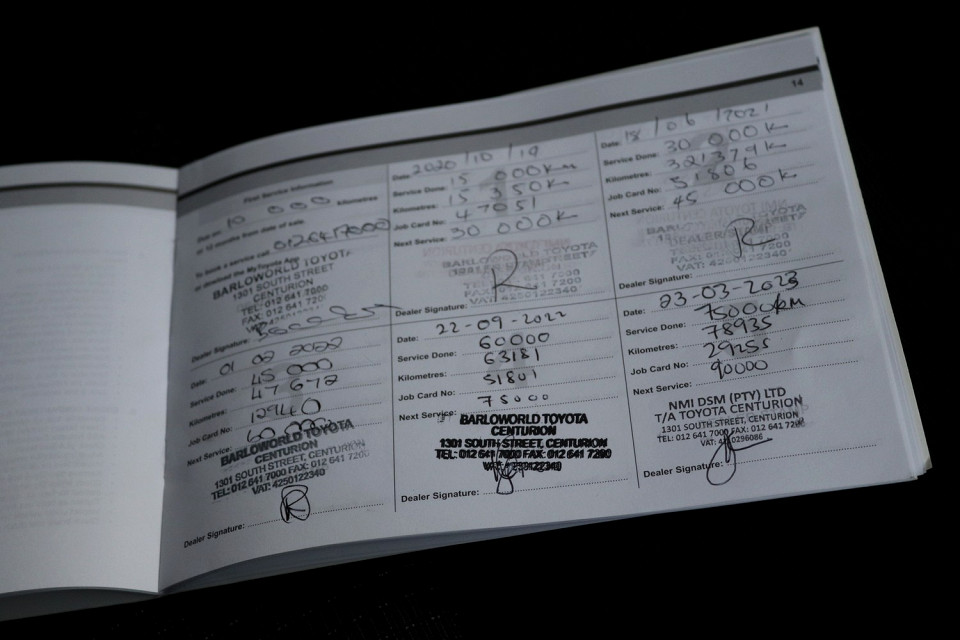 14
First Service Information
Due at: 10 000 Kilometres
or 12 months from date of sale.
To book a service call 0126417000
or download the MyToyota App
BARLOWORLD TOYOTA
1301 SOUTH STREET
CENTURION
TEL: 012 641 7000
FAX: 012 641 7200
Dealer Signature:
Date: 2020/10/19
Service Done: 15 000km
Kilometres: 15 350k
Job Card No: 47051
Next Service: 30 000k
BARLOWORLD TOYOTA
VAT: 4250122340
Dealer Signature:
Date: 18/06/2021
Service Done: 30 000k
Kilometres: 321379k
Job Card No: 51806
Next Service: 45 000k
VAT: 4250122340
Dealer Signature:
Date: 01 02 2022
Service Done: 45 000
Kilometres: 47672
Job Card No: 12940
Next Service: 60 000
BARLOWORLD TOYOTA
CENTURION
1301 SOUTH STREET, CENTURION
TEL: 012 641 7000 FAX: 012 641 7200
VAT: 4250122340
Dealer Signature:
Date: 22-09-2022
Service Done: 60000
Kilometres: 63181
Job Card No: 51801
Next Service: 75000
BARLOWORLD TOYOTA
CENTURION
1301 SOUTH STREET, CENTURION
TEL: 012 641 7000 FAX: 012 641 7200
VAT: 4250122340
Dealer Signature:
Date: 23-03-2023
Service Done: 75000km
Kilometres: 78935
Job Card No: 29255
Next Service: 90000
NMI DSM (PTY) LTD
T/A TOYOTA CENTURION
1301 SOUTH STREET, CENTURION
TEL: 012 641 7000 FAX: 012 641 7200
Dealer Signature: